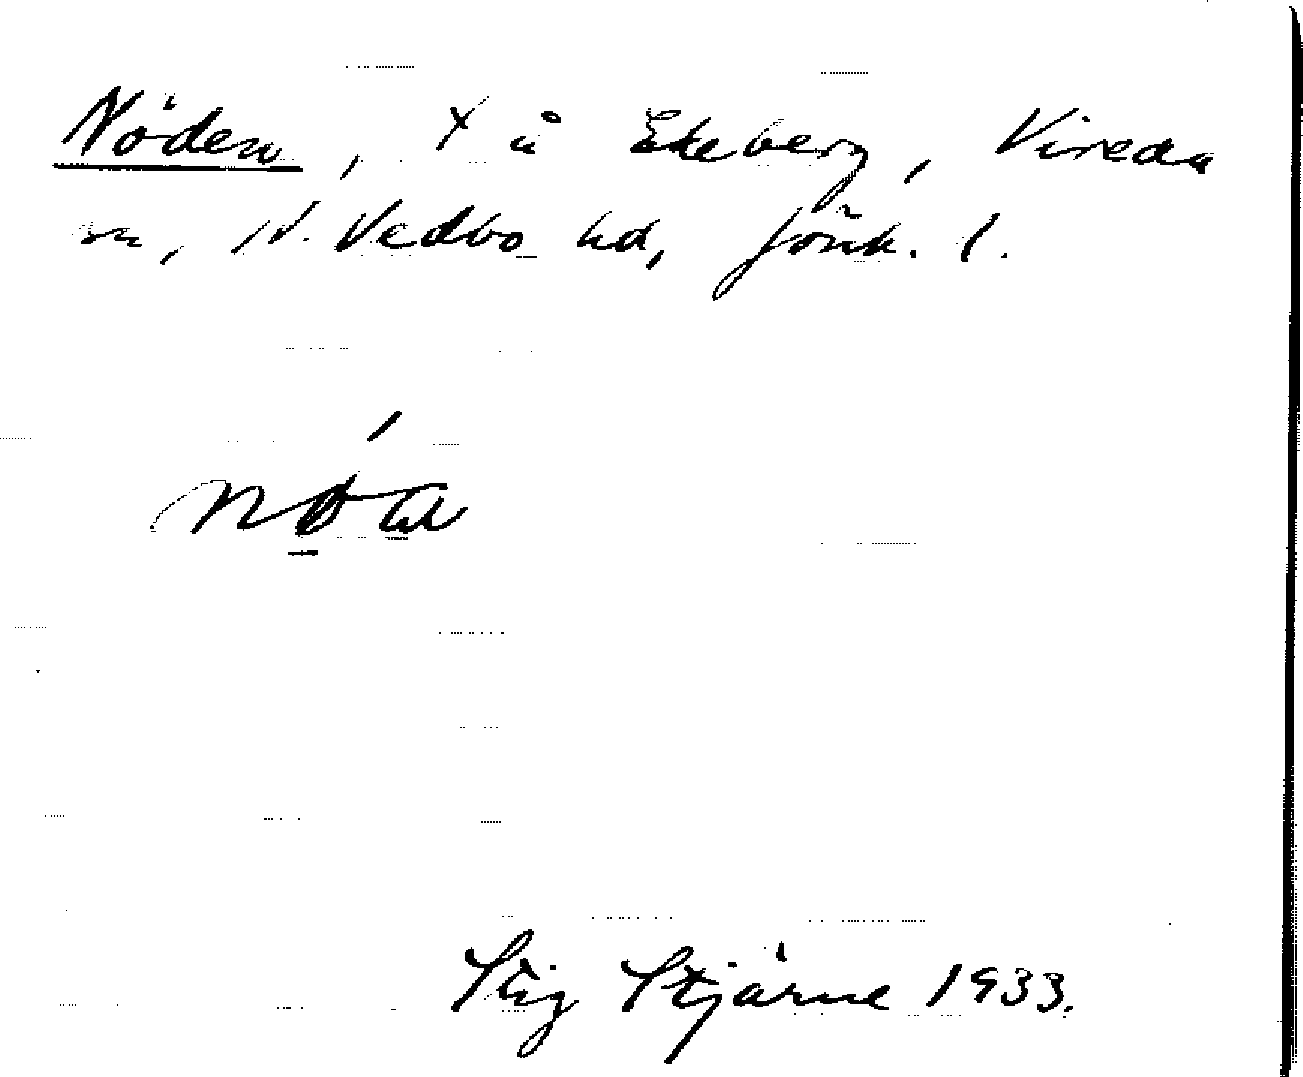 Nöden, x å Ekeberg, Vireda
sn, N. Vedbo hd, Jönk. l.
Stig Stjärne 1933.